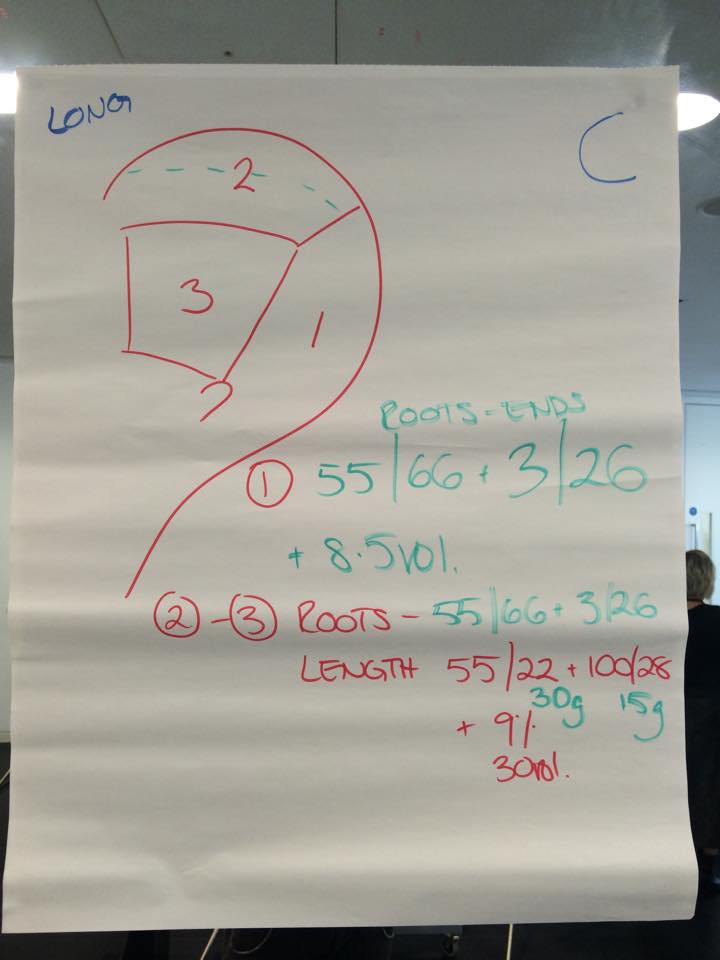 LONG
C
2
3
1
ROOTS - ENDS
① 55/66 + 3/26
+ 8.5vol.
② - ③ ROOTS - 55/66 + 3/26
LENGTH 55/22 + 100/28
30g 15g
+ 9%
30vol.